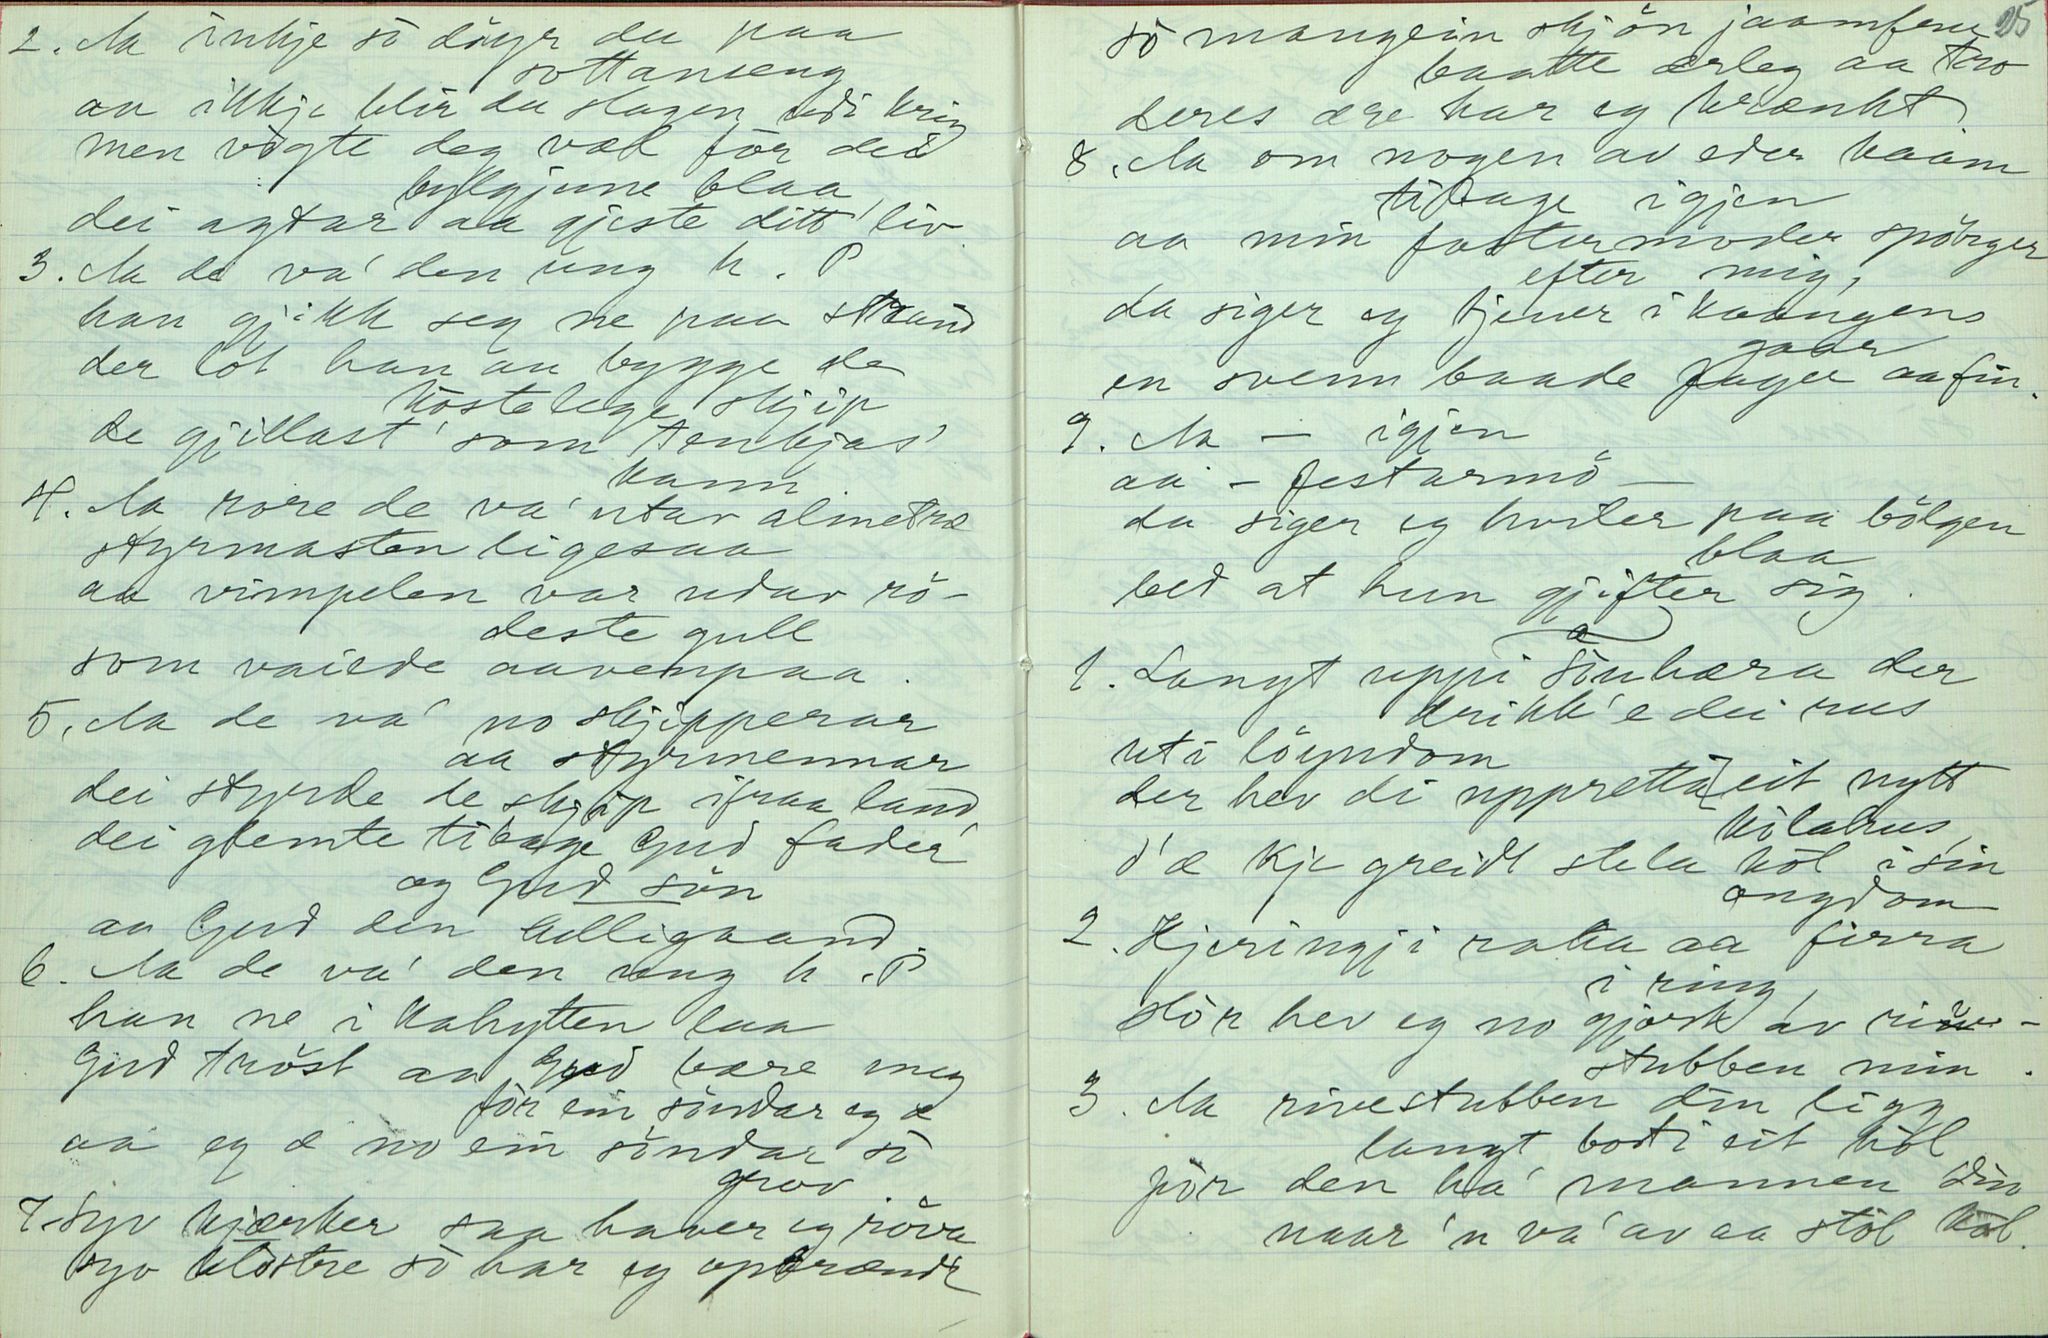 2. Aa inkje sò döyr du paa
sottanseng
aa ikkje blir du slagen udi krig
men vògte deg væl før dei
bylgjune blaa,
dei agtar aa gjeste ditt liv
3. Aa de va' den ung h. P
han gjikk seg ne paa strand
der lòt han au bygge de
kostelege skjip
de gjillast' som tenkjas'
kann
4. Aa rore de va' utav almetræ
styrmasten ligesaa
aa vimpelen var udav rö-
deste gull
som vaiede aavenpaa.
5. Aa de va' no skjipperar
aa styrmennar
dei styrde de skjip ifraa land,
dei glemte tibage Gud fader
og Gud sön
aa Gud den helligaand.
6. Aa de va' den ung h. P
han ne i kahytten laa
Gud tröst aa Gud bære meg
för ein söndar eg æ
aa eg æ no ein söndar sò
grov
7. Syv kjærker saa haver eg röva
syv klostre sò har eg opbrændt
25
sò mangein skjön jaamfru
baatte ærleg aa tro
deres ære har eg krænkt
8. Aa om nogen av eder kaam
tibage igjen
aa min fostermoder spörger
efter mig,
da siger eg tjener i kaangens
gaar
en svenn baade fager aa fin.
9. Aa — igjen
aa — festarmö —
da siger eg hviler paa bölgen
blaa
bed at hun gjifter sig.
1. Langt uppi Sönhæra der
drikk'e dei rus
uti löyndom
der hev di uppretta eit nytt
kòlahus,
d'æ kje greidt stela kòl i sin
ongdom
2. Kjeringji raka aa firra
i ring,
Hòr hev eg no gjort av rive-
stubben min.
3. Aa rivestubben din ligg
langt bort i eit hòl
för den ha' mannen din
naar 'n va' av aa stòl kòl.